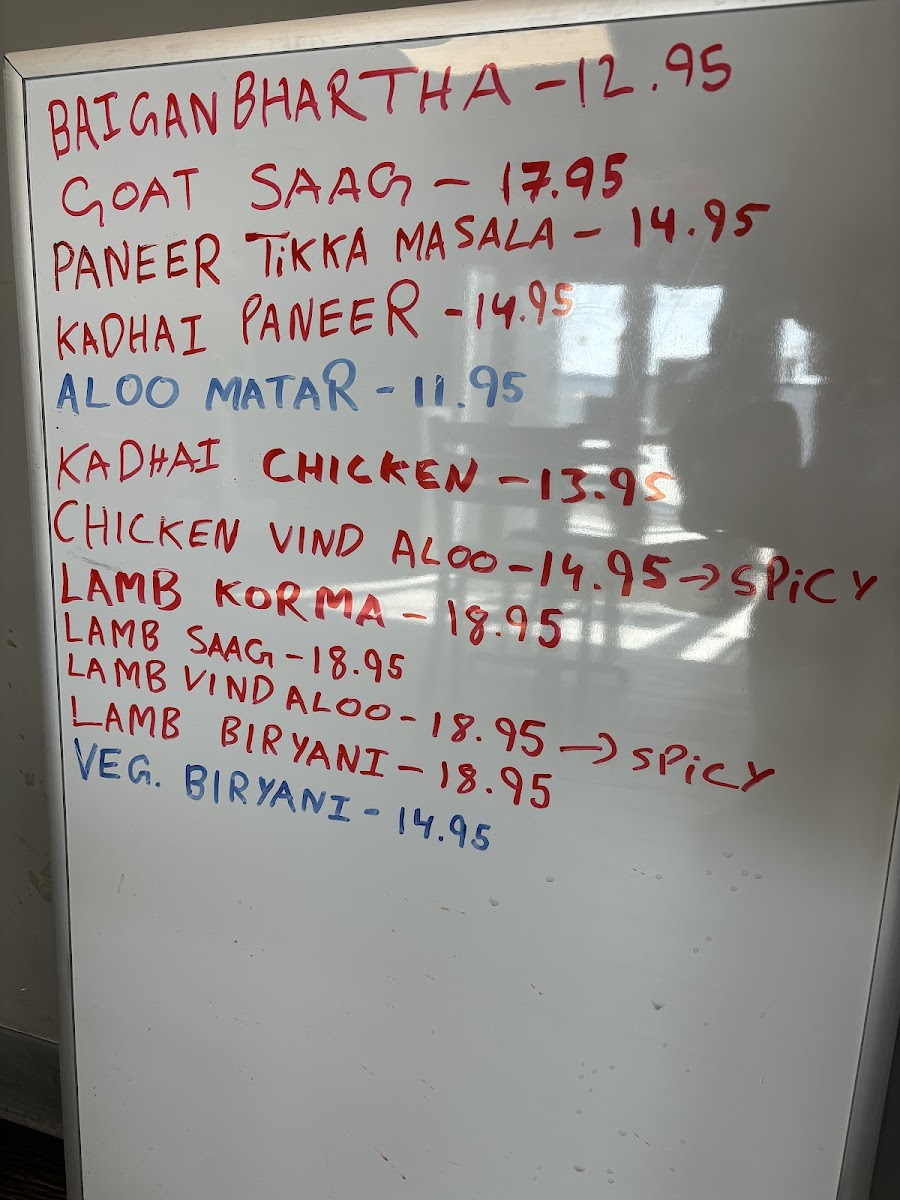 BAIGAN BHARTHA - 12.95
GOAT SAAG - 17.95
PANEER TiKKA MASALA - 14.95
KADHAI PANEER - 14.95
ALOO MATAR - 11.95
KADHAI CHICKEN - 13.95
CHICKEN VIND ALOO - 14.95 → SPiCY
LAMB KORMA - 18.95
LAMB SAAG - 18.95
LAMB VIND ALOO - 18.95 → SPiCY
LAMB BIRYANI - 18.95
VEG. BIRYANI - 14.95